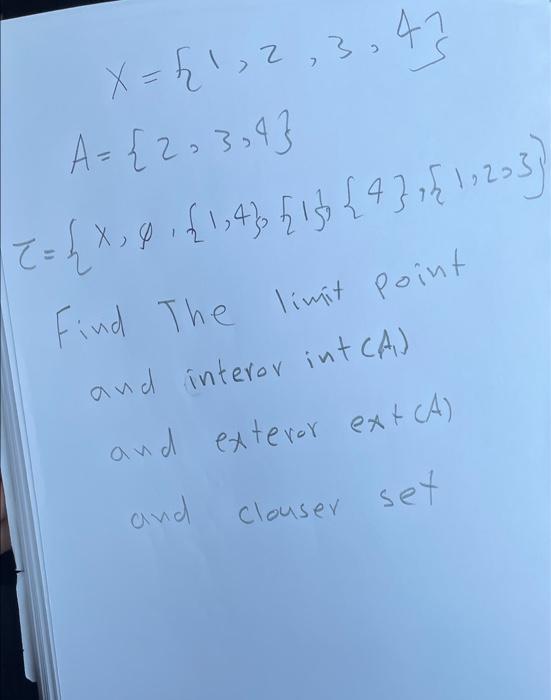 X = {1, 2, 3, 4}
A = {2, 3, 4}
τ = {X, φ, {1,4}, {1}, {4}, {1,2,3}}
Find The limit point
and interor int(A)
and exteror ext(A)
and clouser set